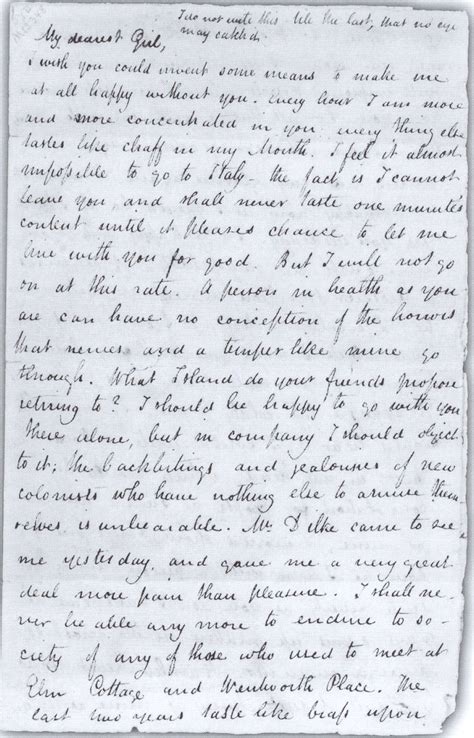 I do not write this till the last, that no eye
may catch it.
My dearest Girl,
I wish you could invent some means to make me
at all happy without you. Every hour I am more
and more concentrated in you every thing else
tastes like chaff in my Mouth. I feel it almost
impossible to go to Italy - the fact is I cannot
leave you, and shall never taste one minute's
content until it pleases chance to let me
live with you for good. But I will not go
on at this rate. A person in health as you
are can have no conception of the horrors
that nerves and a temper like mine go
through. What Island do your friends propose
retiring to? I should be happy to go with you
there alone, but in company I should object
to it; the backbitings and jealousies of new
colonists who have nothing else to amuse them
selves, is unbearable. Mr Dilke came to see
me yesterday, and gave me a very great
deal more pain than pleasure. I shall ne-
ver be able any more to endure to so-
ciety of any of those who used to meet at
Elm Cottage and Wentworth Place. The
last two years taste like brass upon